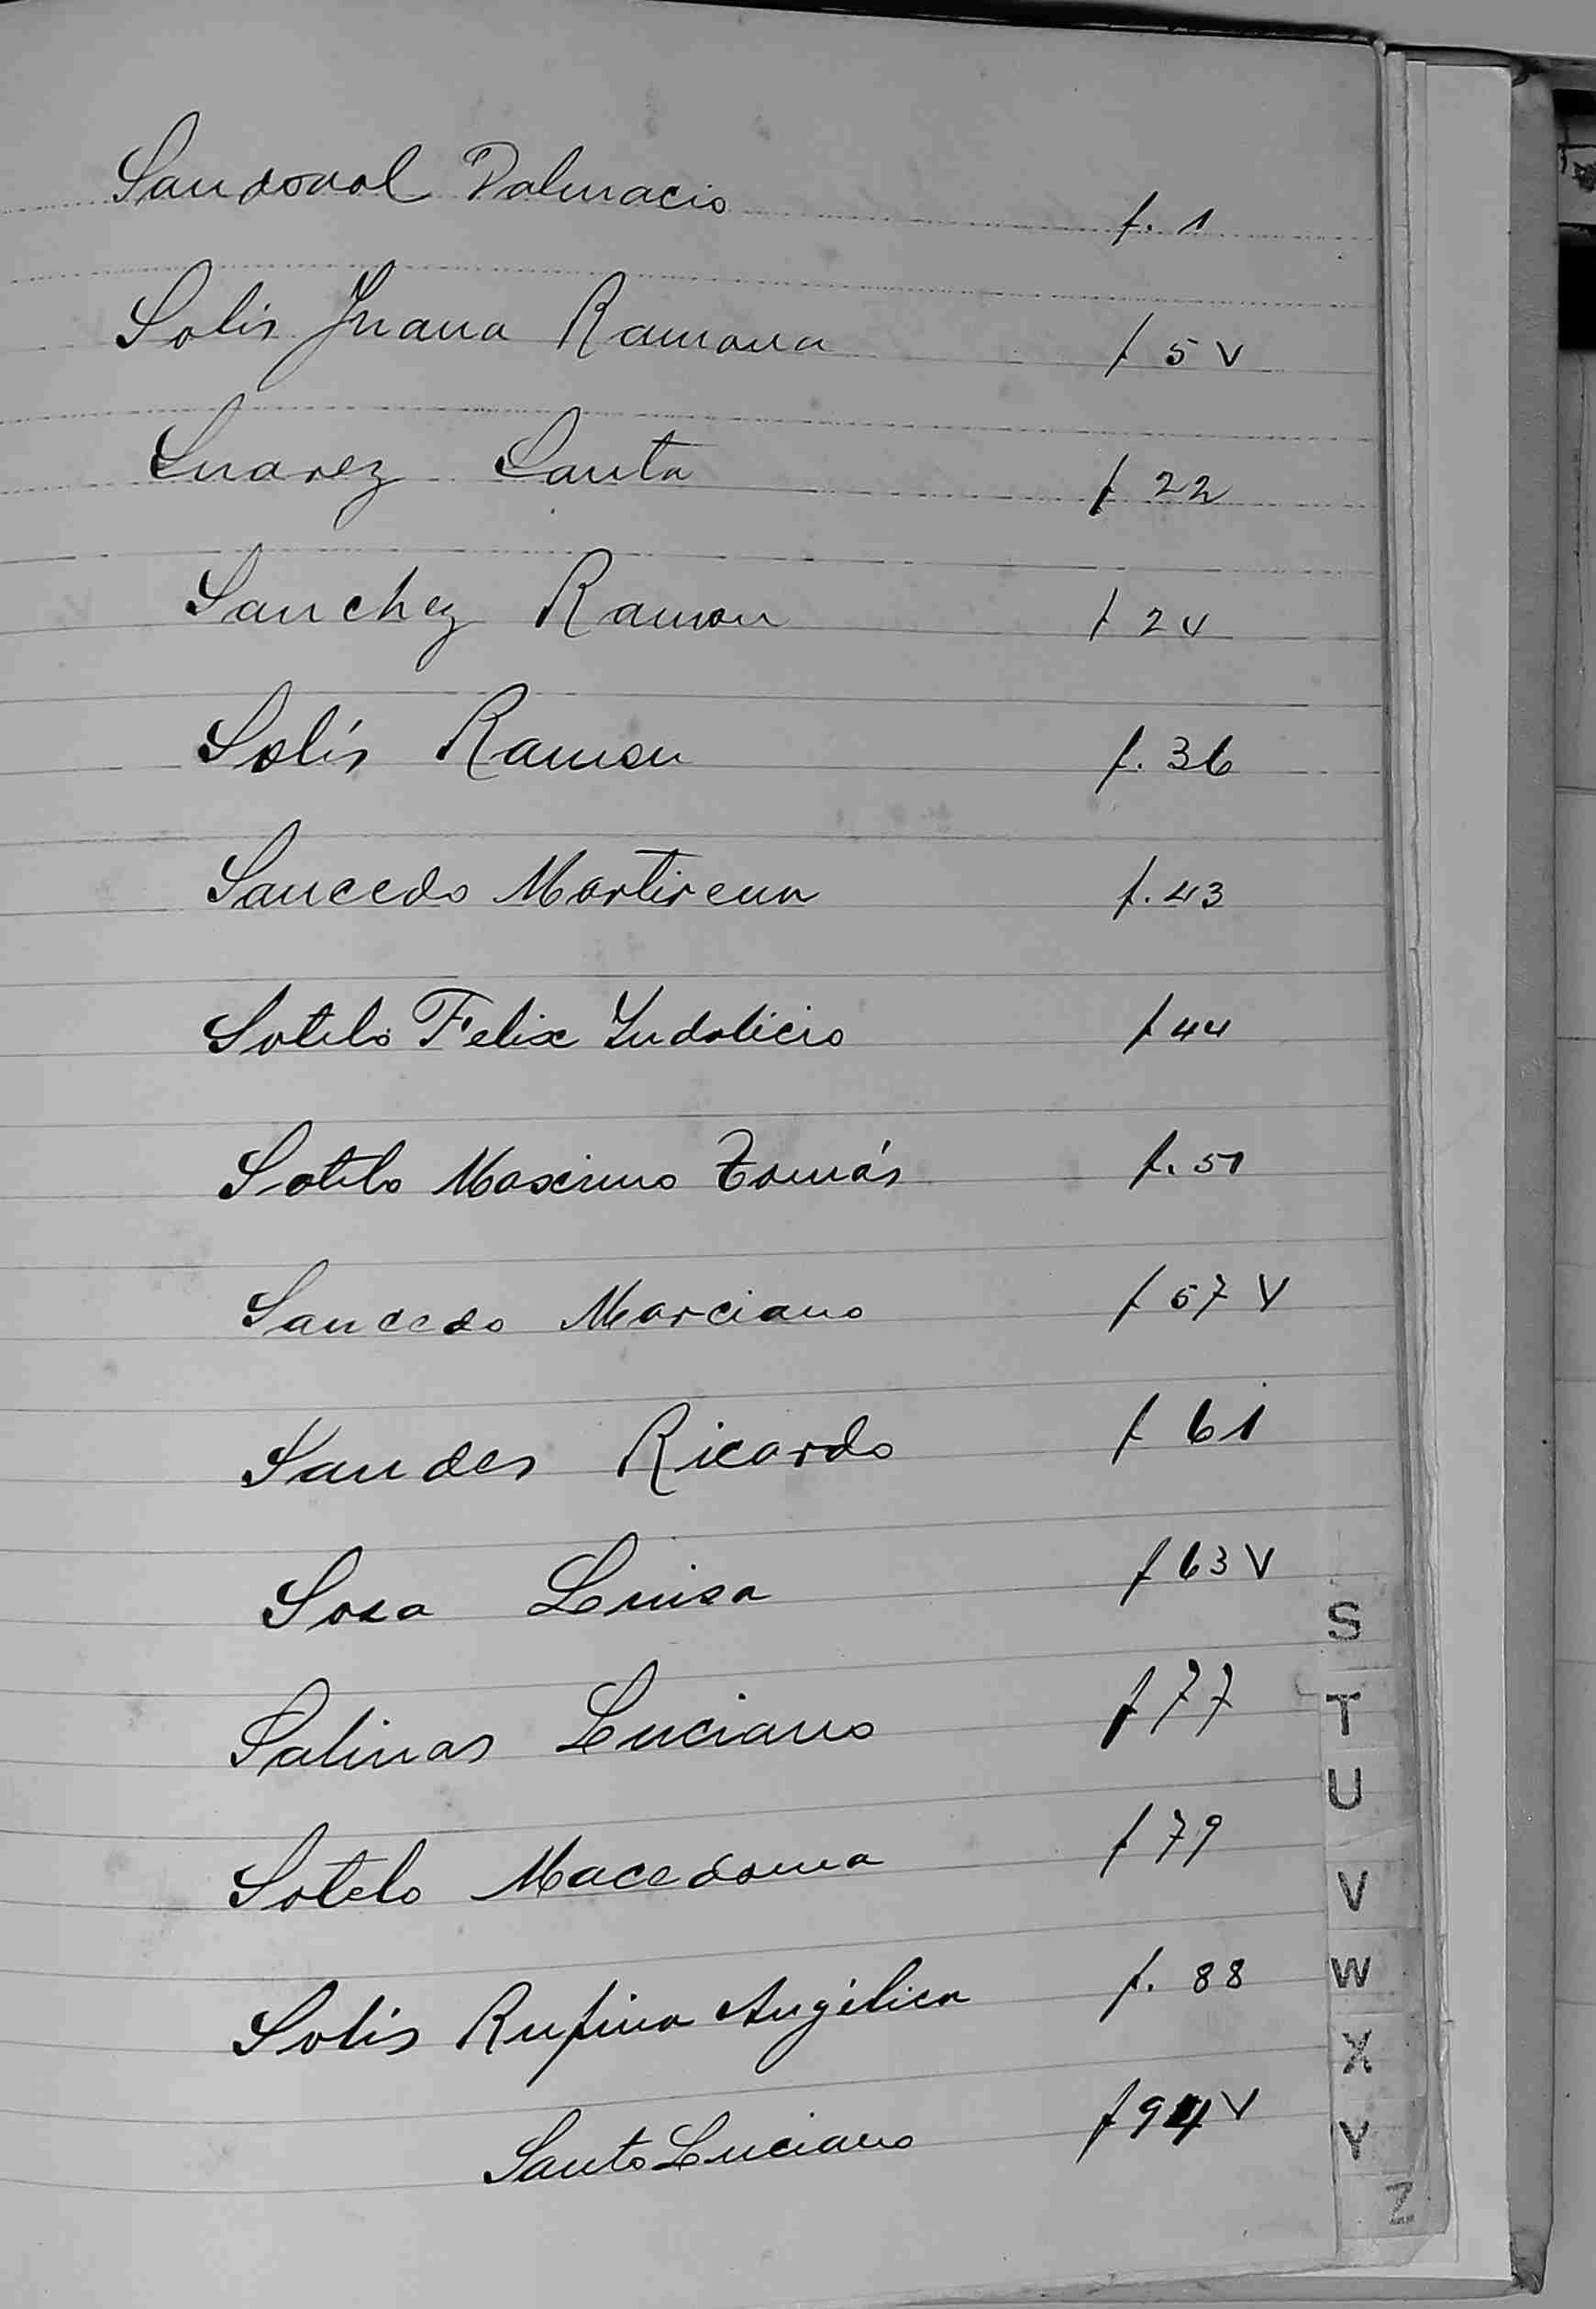 Sandoval Dalmacio f. 1
Solis Juana Ramona f 5 v
Suarez Santa f 22
Sanchez Ramon f 24
Solís Ramon f. 36
Saucedo Martirena f. 43
Sotelo Felix Indalicio f 44
Sotelo Maximo Tomás f. 51
Saucedo Marciano f 57 v
Sandes Ricardo f 61
Sosa Luisa f 63 v
Salinas Luciano f 77
Sotelo Macedonia f 79
Solís Rufina Angélica f. 88
Santo Luciano f 94 v
S
T
U
V
W
X
Y
Z